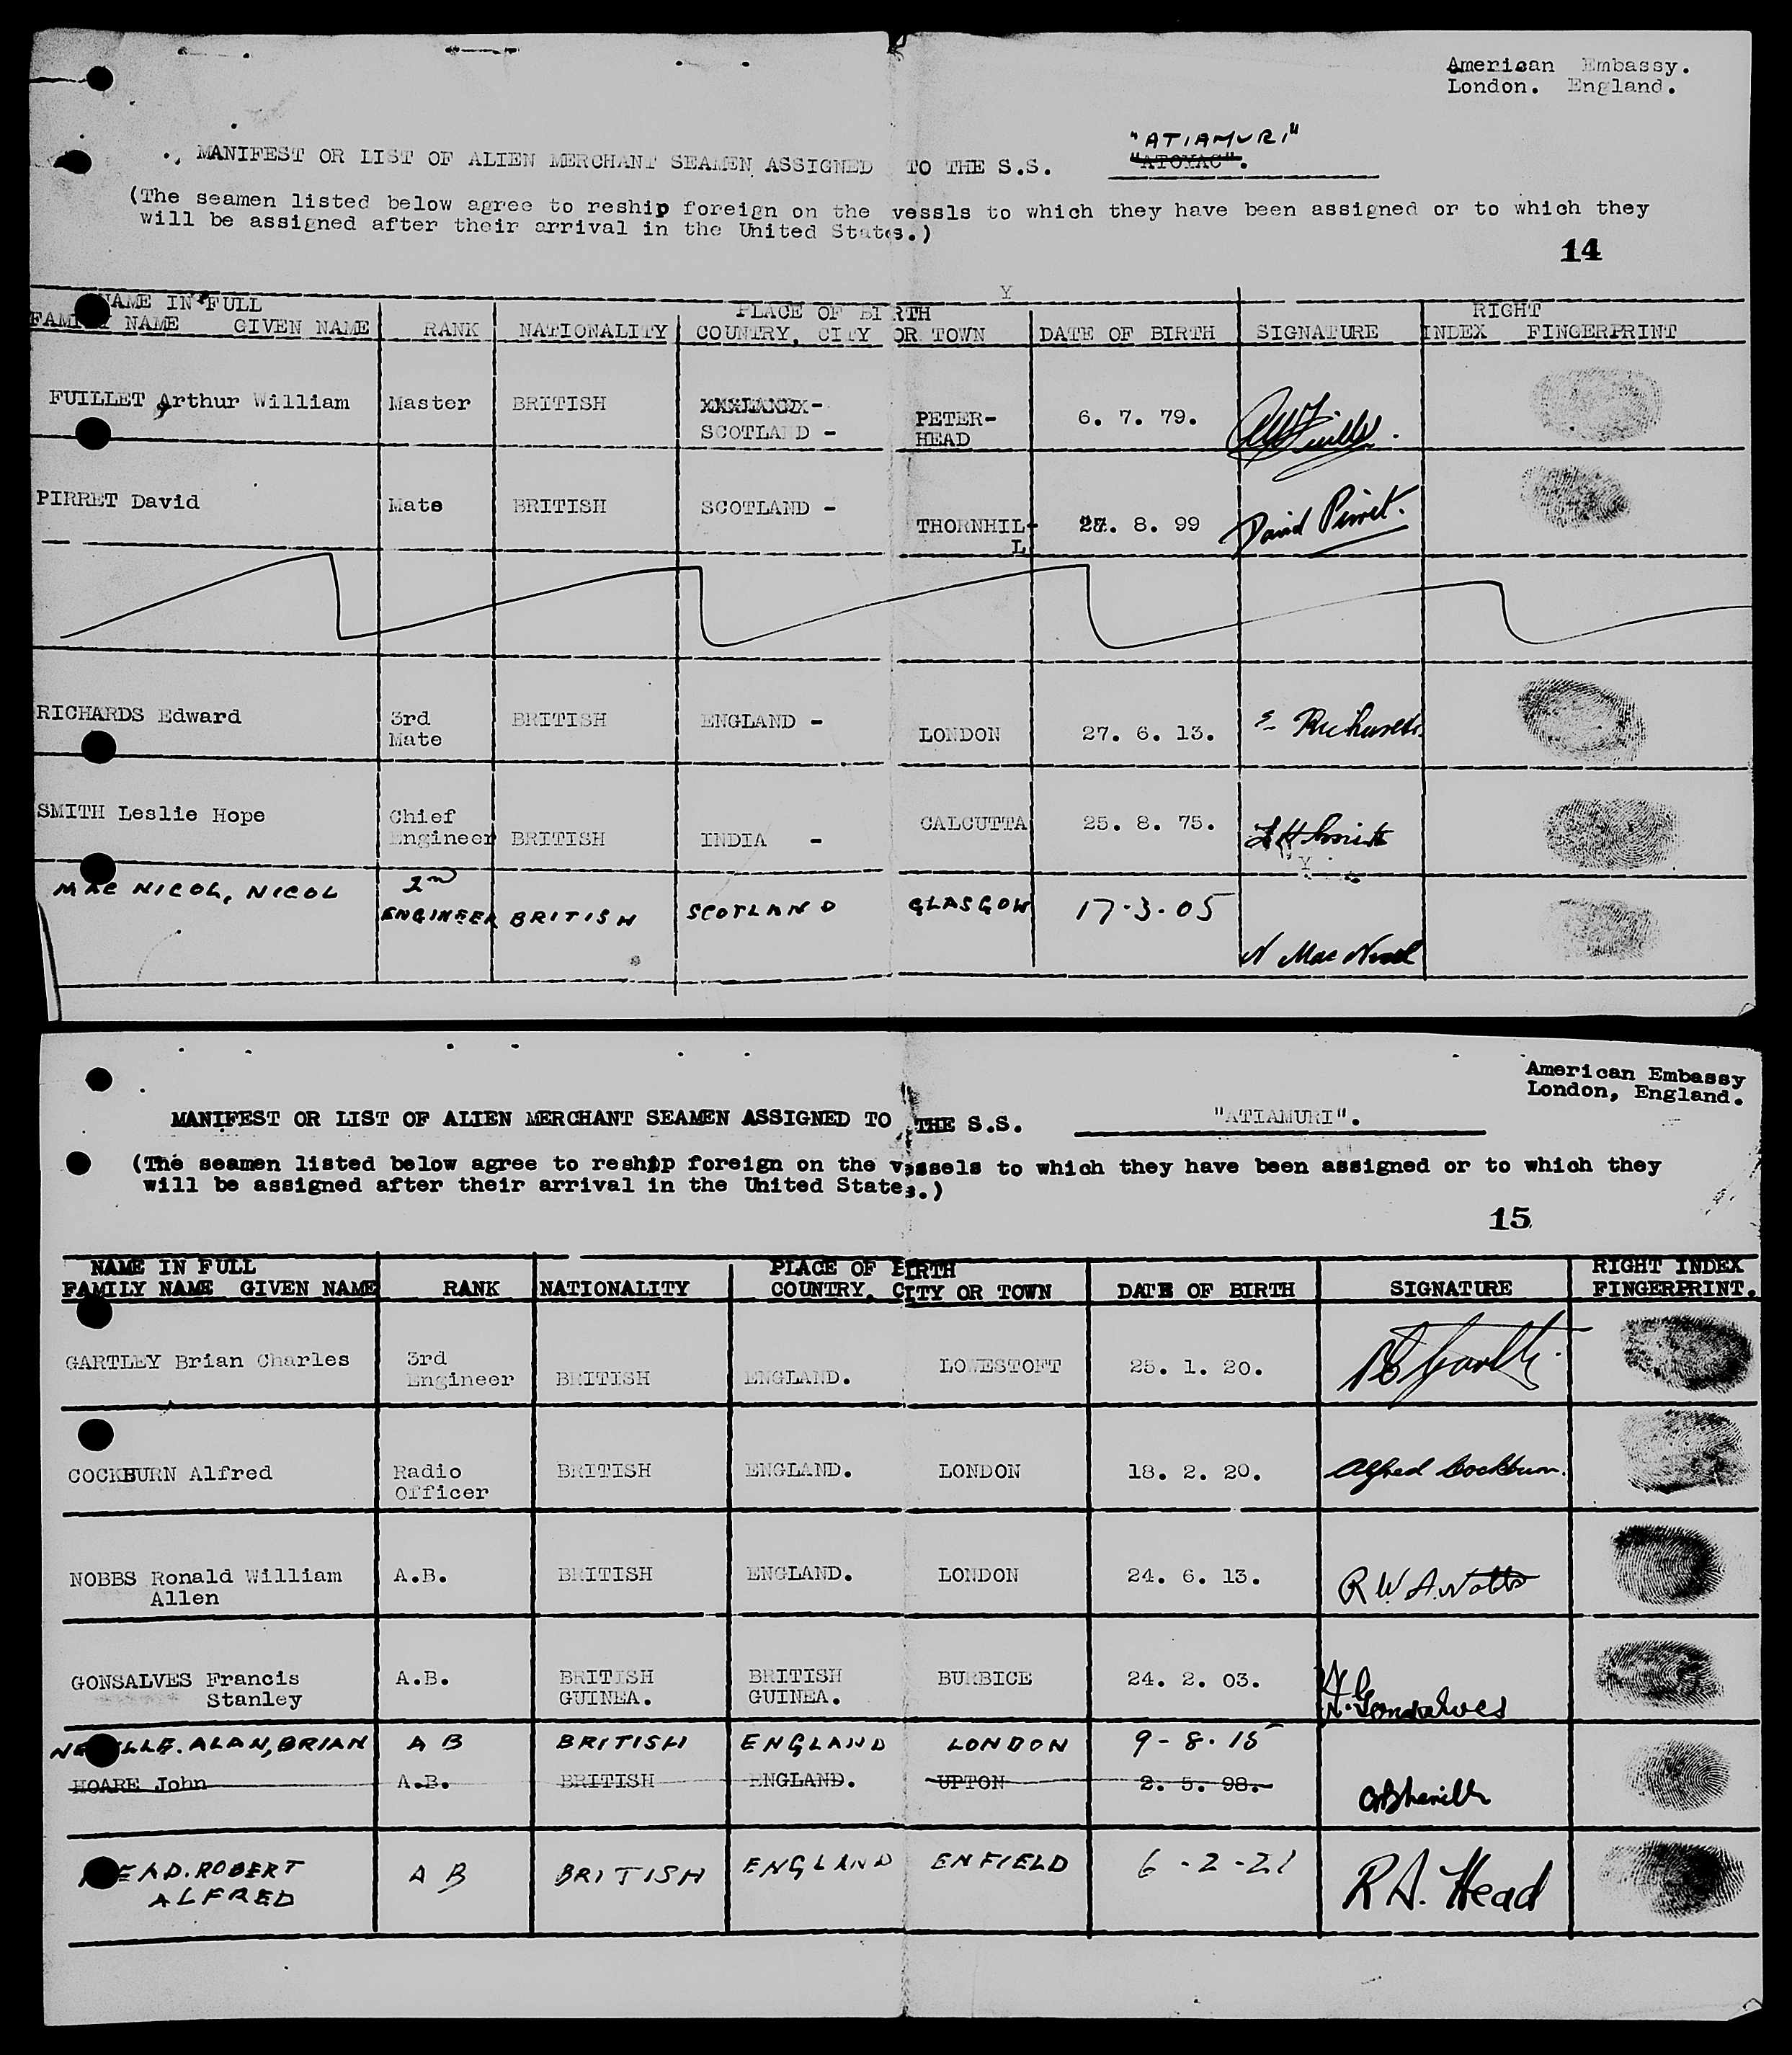 American Embassy.
London. England.
"ATIAMURI"
MANIFEST OR LIST OF ALIEN MERCHANT SEAMEN ASSIGNED TO THE S.S. "ATOMAC".
(The seamen listed below agree to reship foreign on the vessls to which they have been assigned or to which they
will be assigned after their arrival in the United States.)
14
Y
NAME IN FULL PLACE OF BIRTH RIGHT
FAMILY NAME GIVEN NAME RANK NATIONALITY COUNTRY, CITY OR TOWN DATE OF BIRTH SIGNATURE INDEX FINGERPRINT
FUILLET Arthur William Master BRITISH - PETER- 6. 7. 79.
SCOTLAND - HEAD
PIRRET David Mate BRITISH SCOTLAND - THORNHIL- 8. 99 David Pirret.
L
RICHARDS Edward 3rd BRITISH ENGLAND - LONDON 27. 6. 13. E Richards
Mate
SMITH Leslie Hope Chief CALCUTTA 25. 8. 75. L H Smith
Engineer BRITISH INDIA -
Y
MAC NICOL, NICOL 2nd
ENGINEER BRITISH SCOTLAND GLASGOW 17.3.05
N MacNicol
American Embassy
London, England.
MANIFEST OR LIST OF ALIEN MERCHANT SEAMEN ASSIGNED TO THE S.S. "ATIAMURI".
(The seamen listed below agree to reship foreign on the vessels to which they have been assigned or to which they
will be assigned after their arrival in the United States.)
15
NAME IN FULL PLACE OF BIRTH RIGHT INDEX
FAMILY NAME GIVEN NAME RANK NATIONALITY COUNTRY, CITY OR TOWN DATE OF BIRTH SIGNATURE FINGERPRINT.
GARTLEY Brian Charles 3rd LOWESTOFT 25. 1. 20.
Engineer BRITISH ENGLAND.
COCKBURN Alfred Radio BRITISH ENGLAND. LONDON 18. 2. 20. Alfred Cockburn.
Officer
NOBBS Ronald William A.B. BRITISH ENGLAND. LONDON 24. 6. 13. R W. A. Nobbs
Allen
GONSALVES Francis A.B. BRITISH BRITISH BURBICE 24. 2. 03.
Stanley GUINEA. GUINEA. Gonsalves
NEVILLE. ALAN, BRIAN A B BRITISH ENGLAND LONDON 9-8.15
HOARE John A.B. BRITISH ENGLAND. UPTON 2. 5. 98.
HEAD. ROBERT A B BRITISH ENGLAND ENFIELD 6-2-21 R A. Head
ALFRED